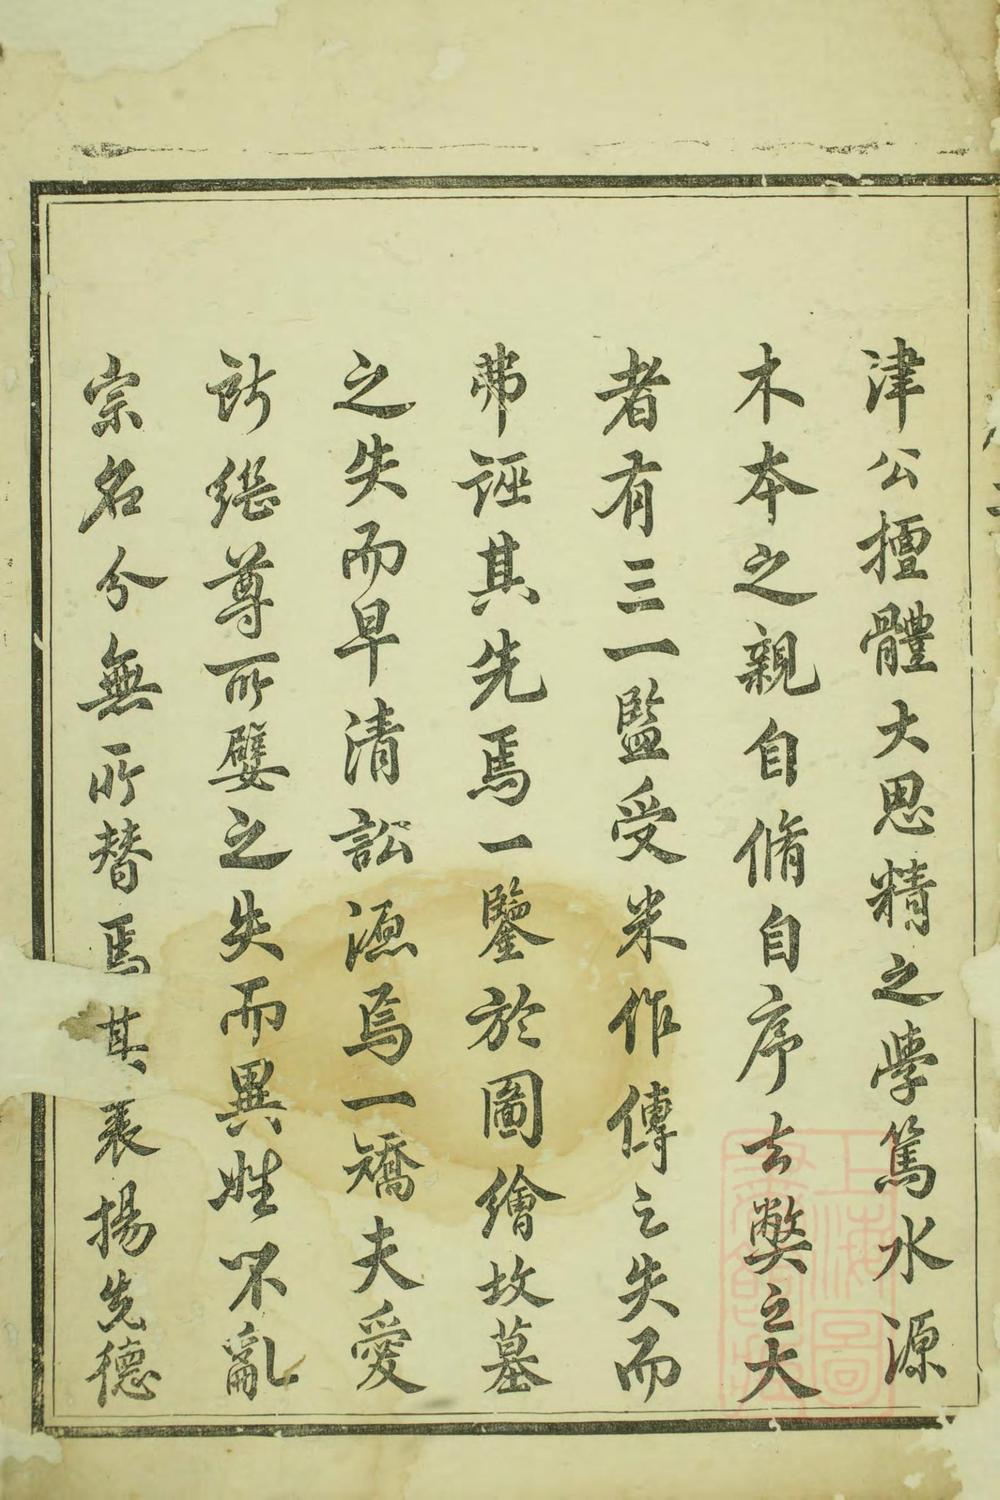 津公擅體大思精之學篤水源
木本之親自脩自序去獘之大
者有三一監受米作傳之失而
弗誣其先焉一鑒於圖繪坟墓
之失而早清訟源焉一矯夫愛
所繼尊所嬖之失而異姓不亂
宗名分無所替焉其表揚先德
上海圖書館藏